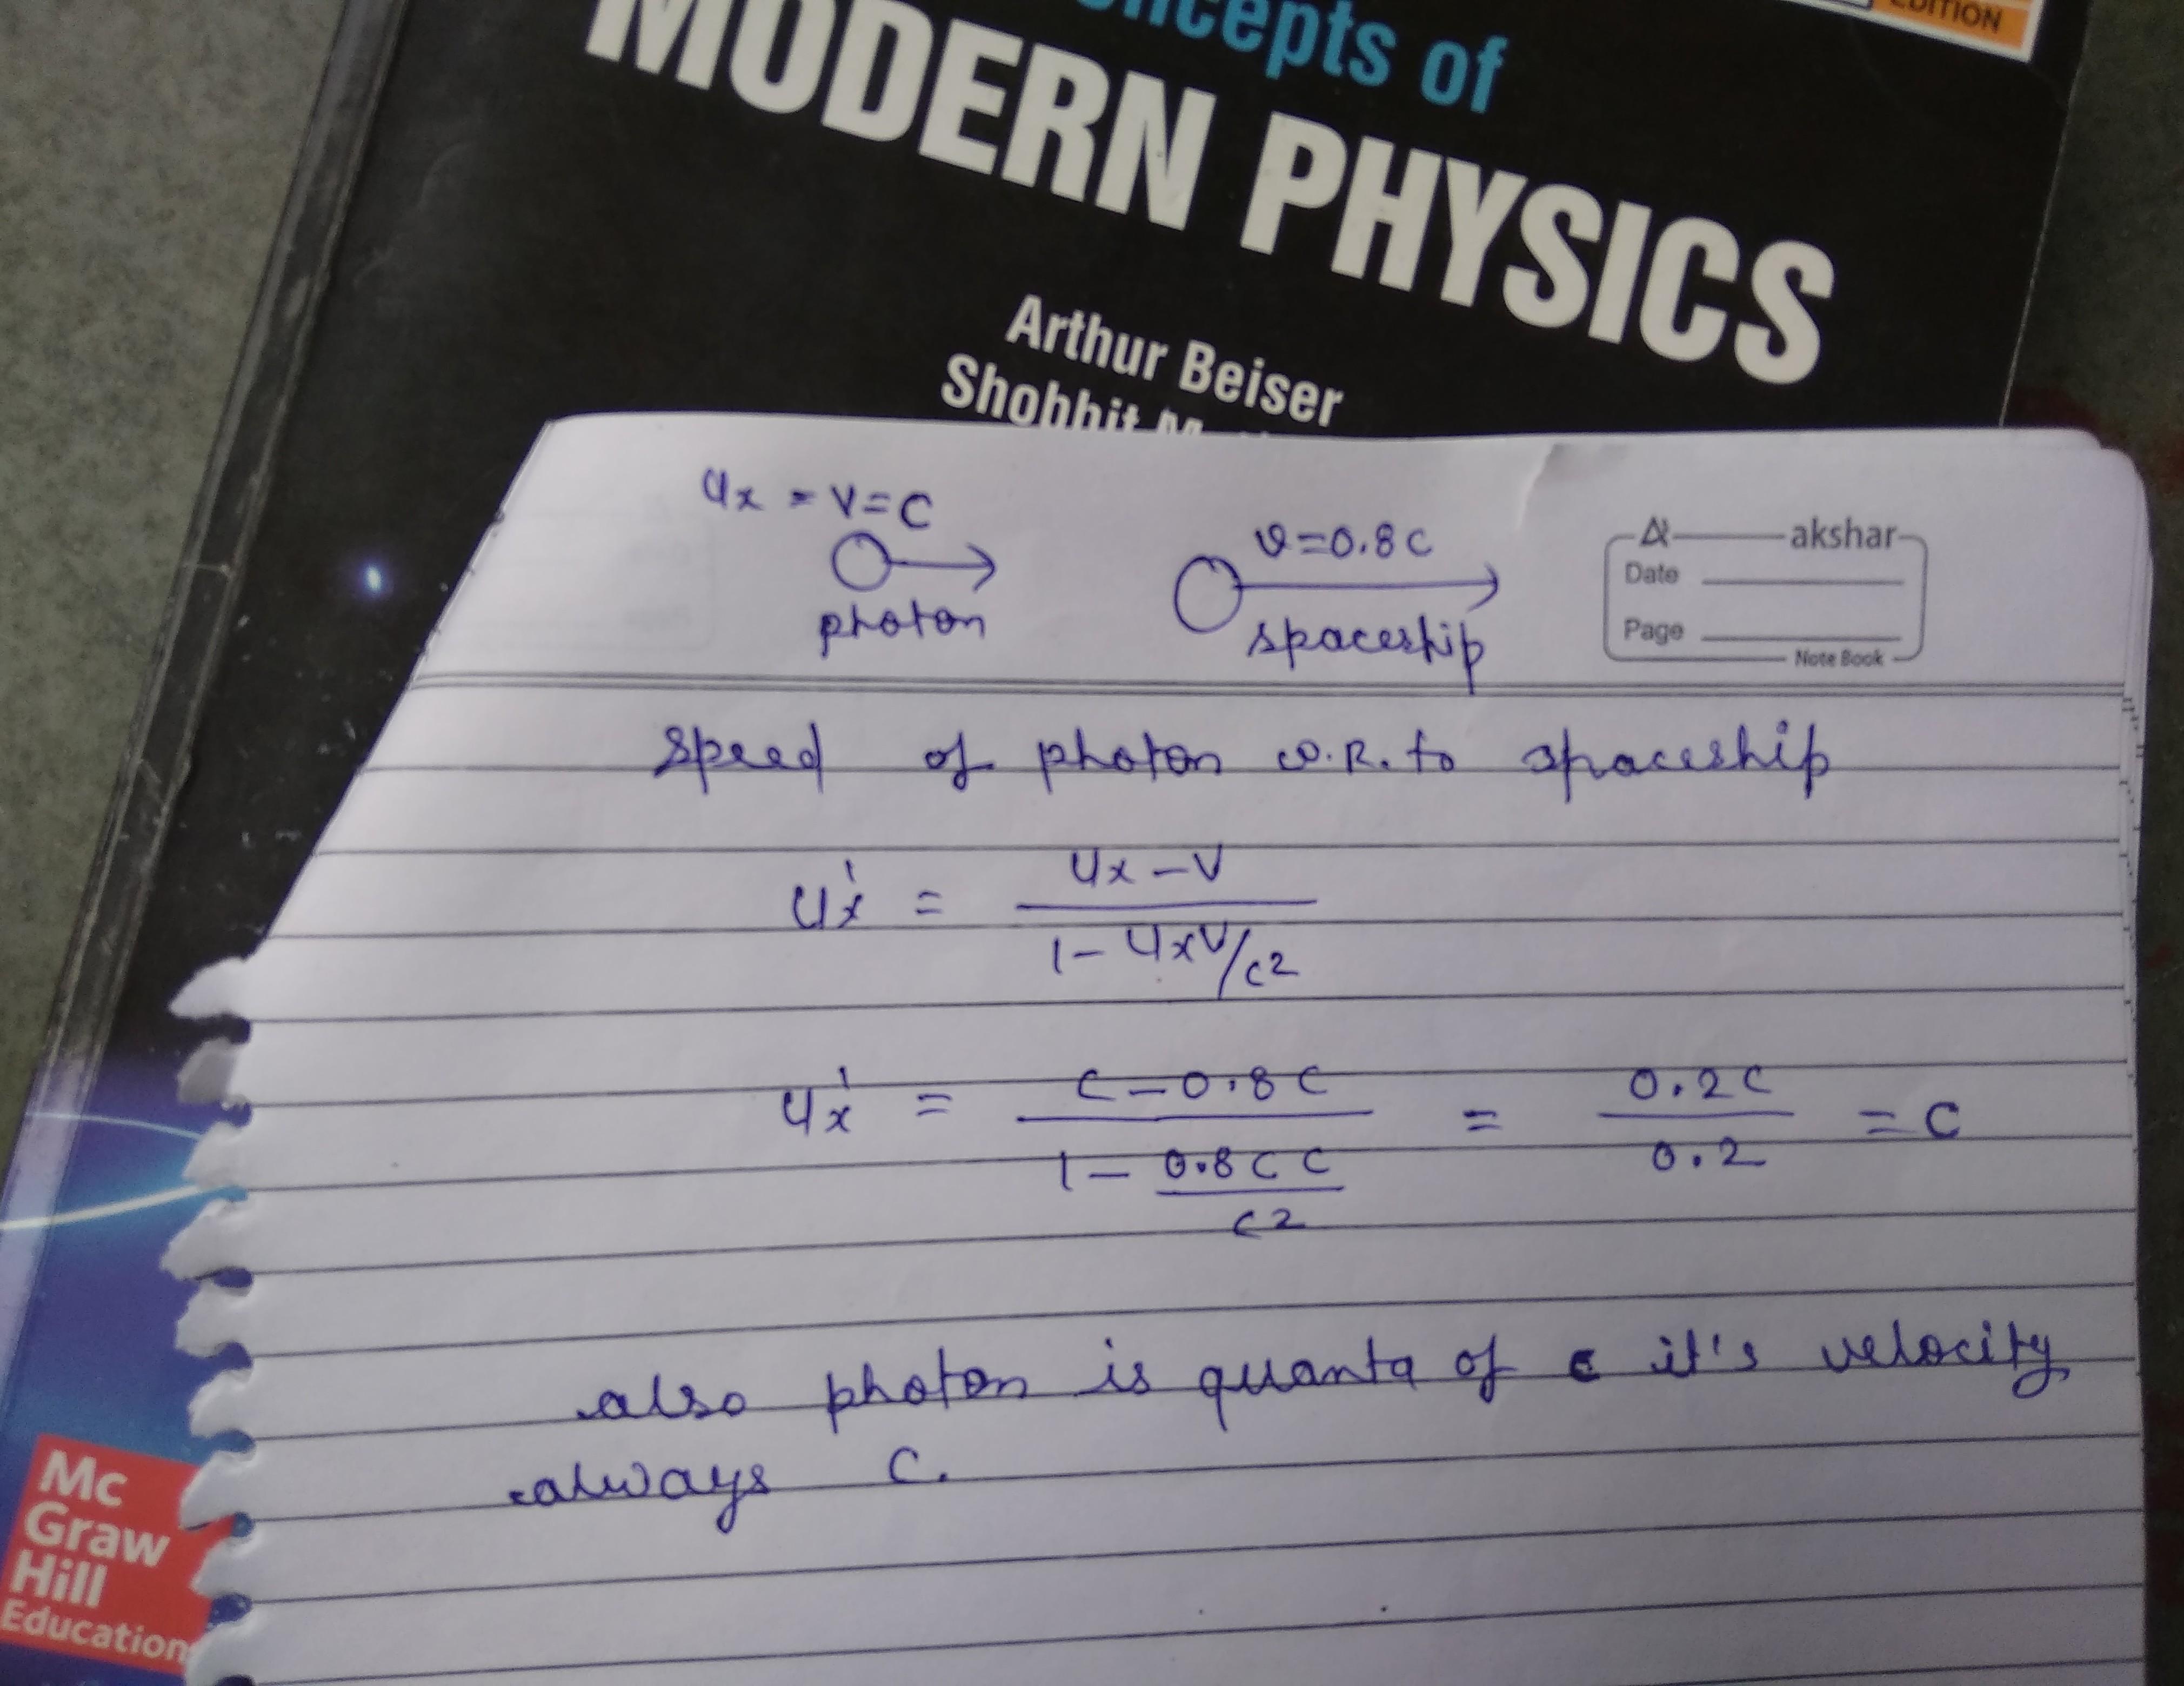 EDITION
ncepts of
MODERN PHYSICS
Arthur Beiser
Shobhit
Ux = V = C
v = 0.8 C
photon
spaceship
akshar
Date
Page
Note Book
Speed of photon w.R. to spaceship
Ux' = Ux - V / 1 - UxV/c2
Ux' = C - 0.8 C / 1 - 0.8 C C / c2 = 0.2 C / 0.2 = C
also photon is quanta of c it's velocity
always C.
Mc
Graw
Hill
Education